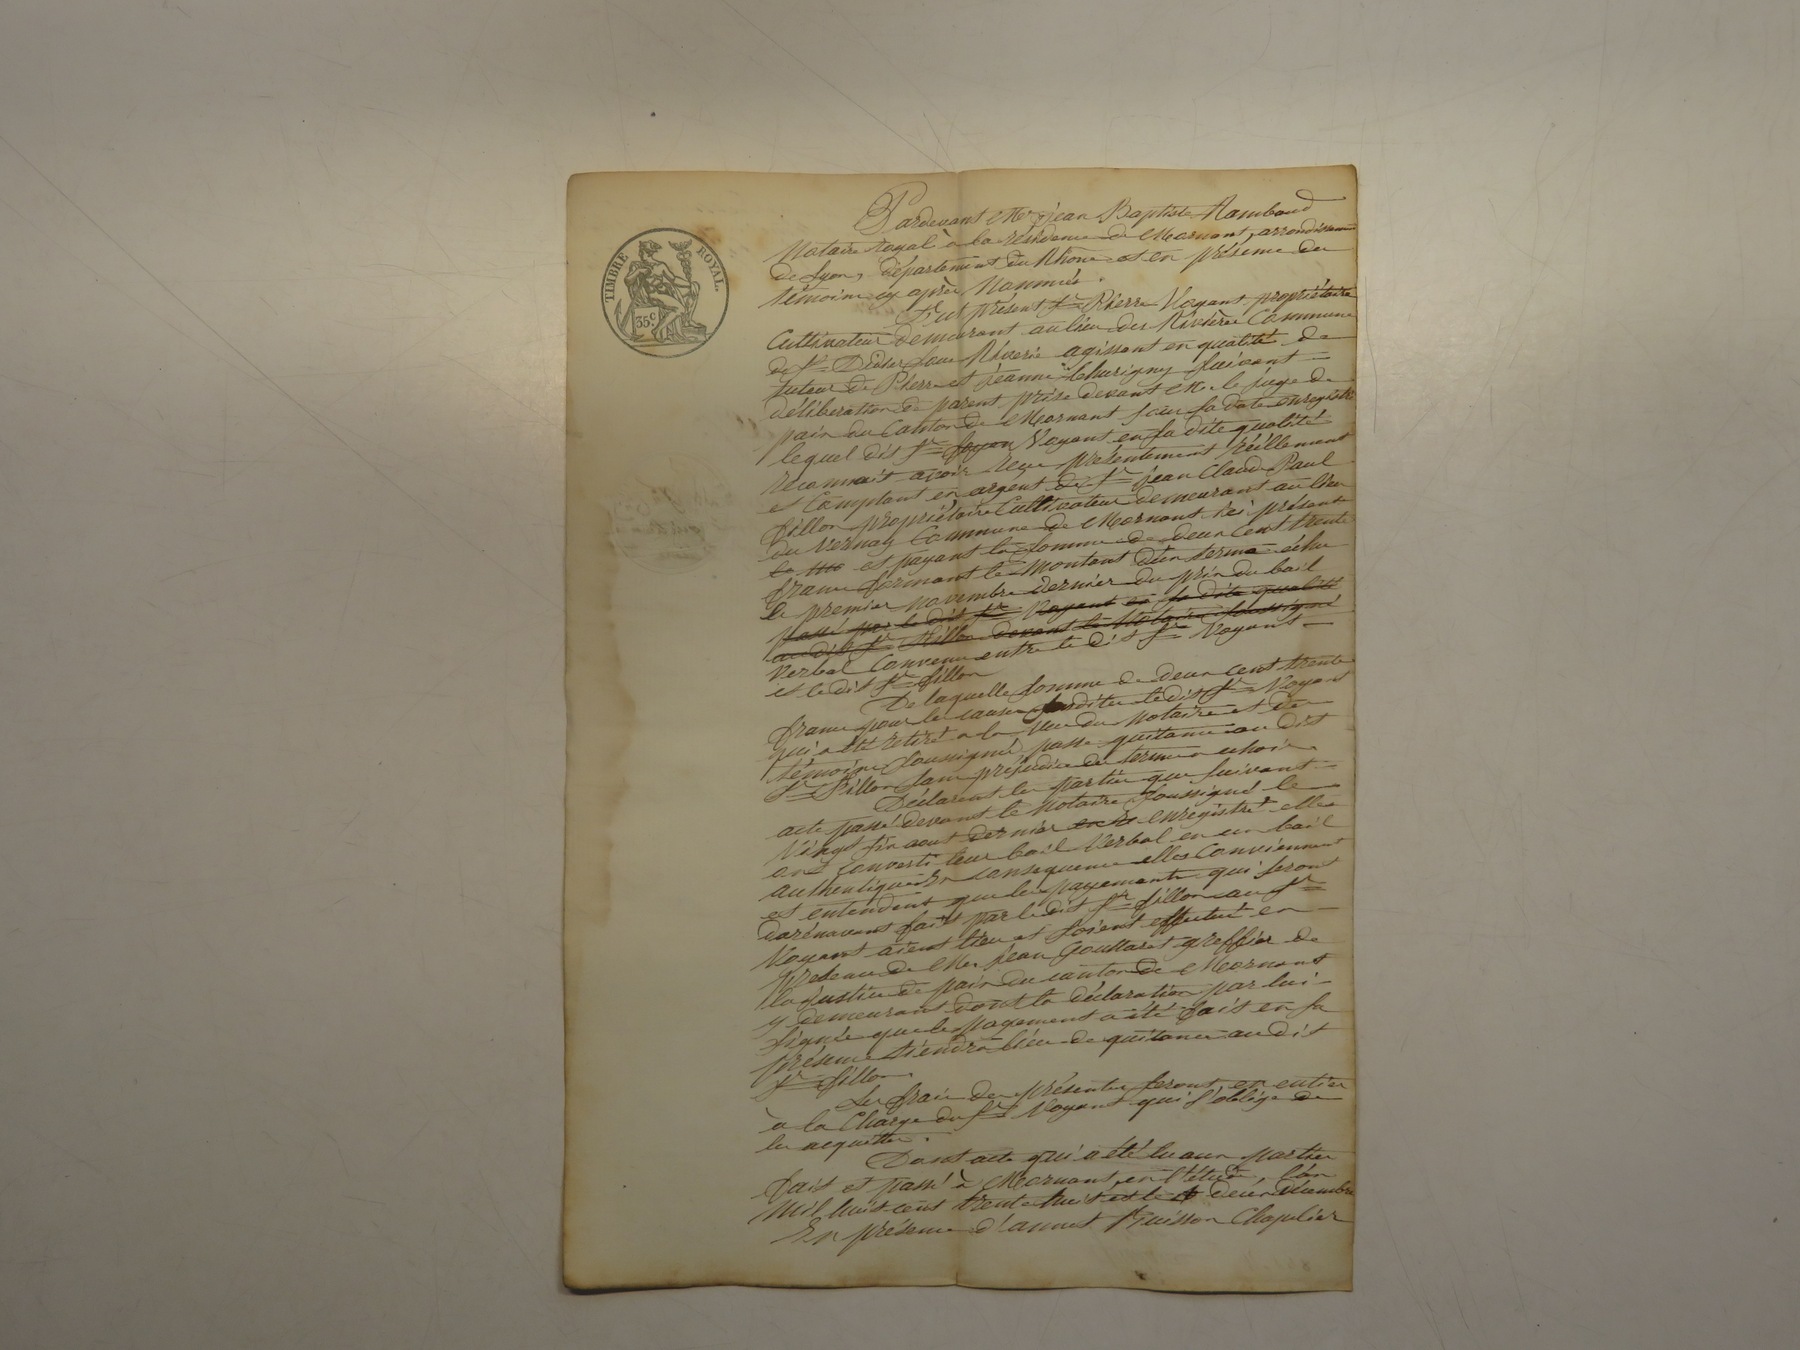 TIMBRE ROYAL.
35c.
Pardevant Me jean Baptiste Rambaud
Notaire royal à la résidence de Mornant, arrondissem
de Lyon, département du Rhône et en présence des
témoins cy après Nommés.
fut présent sr Pierre Voyant propriétaire
Cultivateur demeurant au lieu des Rivières Commune
de st Didier sous Riverie agissant en qualité de
tuteur de Pierre et jeanne Churigny suivant
délibération de parent prise devant Mr le juge de
paix du Canton de Mornant sous sa date enregistré
lequel dit sr Voyant en sa dite qualité
reconnait avoir reçu présentement réellement
et Comptant en argent de sr jean Claude Paul
fillon propriétaire Cultivateur demeurant au lieu
du Vernay Commune de Mornant ici présent
et payant la somme de deux cent trente
francs formant le montant d'un terme échu
le premier novembre dernier du prix du bail
passé par le dit sr Voyant en sa dite qualité
au dit sr fillon devant le Notaire soussigné
Verbal Convenu entre le dit sr Voyant
et le dit sr fillon
De laquelle somme de deux cent trente
francs pour les causes susdites le dit sr Voyant
qui a été retiré à la vue du Notaire et des
témoins soussignés passe quitance au dit
sr fillon sans préjudice des termes a echoir
Déclarent les parties que suivant
acte passé devant le Notaire soussigné le
Vingt six aout dernier enregistré elles
ont converti leur bail Verbal en un bail
authentique En consequence elles Conviennent
et entendent que les payements qui seront
dorénavant faits par le dit sr fillon au sr
Voyant aient lieu et soient effectués en
présence de Me jean Gouttaret greffier de
la justice de paix du canton de Mornant
y demeurant dont la déclaration par lui
signée que le payement a été fait en sa
présence tiendra lieu de quitance au dit
sr fillon.
Les frais des présentes seront en entier
à la Charge du sr Voyant qui s'oblige de
les acquitter.
Dont acte qui a été lu aux parties
fait et passé à Mornant, en l'étude, l'an
Mil huit cent trente huit et le deux Décembre
En présence d'annet Buisson Chapelier